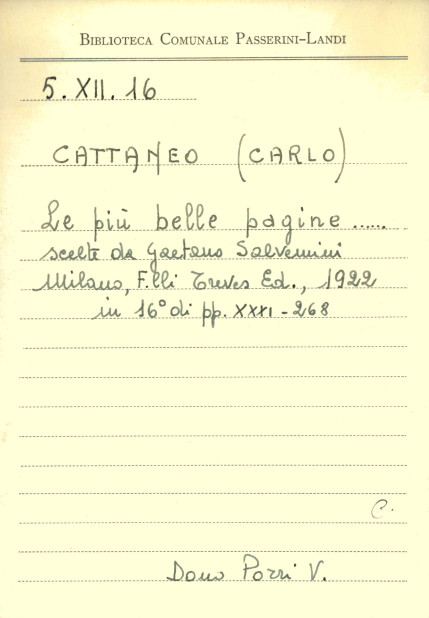 BIBLIOTECA COMUNALE PASSERINI-LANDI
5. XII. 16
CATTANEO (CARLO)
Le più belle pagine ......
scelte da Gaetano Salvemini
Milano, F.lli Treves Ed., 1922
in 16° di pp. XXXI - 268
C.
Dono Pozzi V.